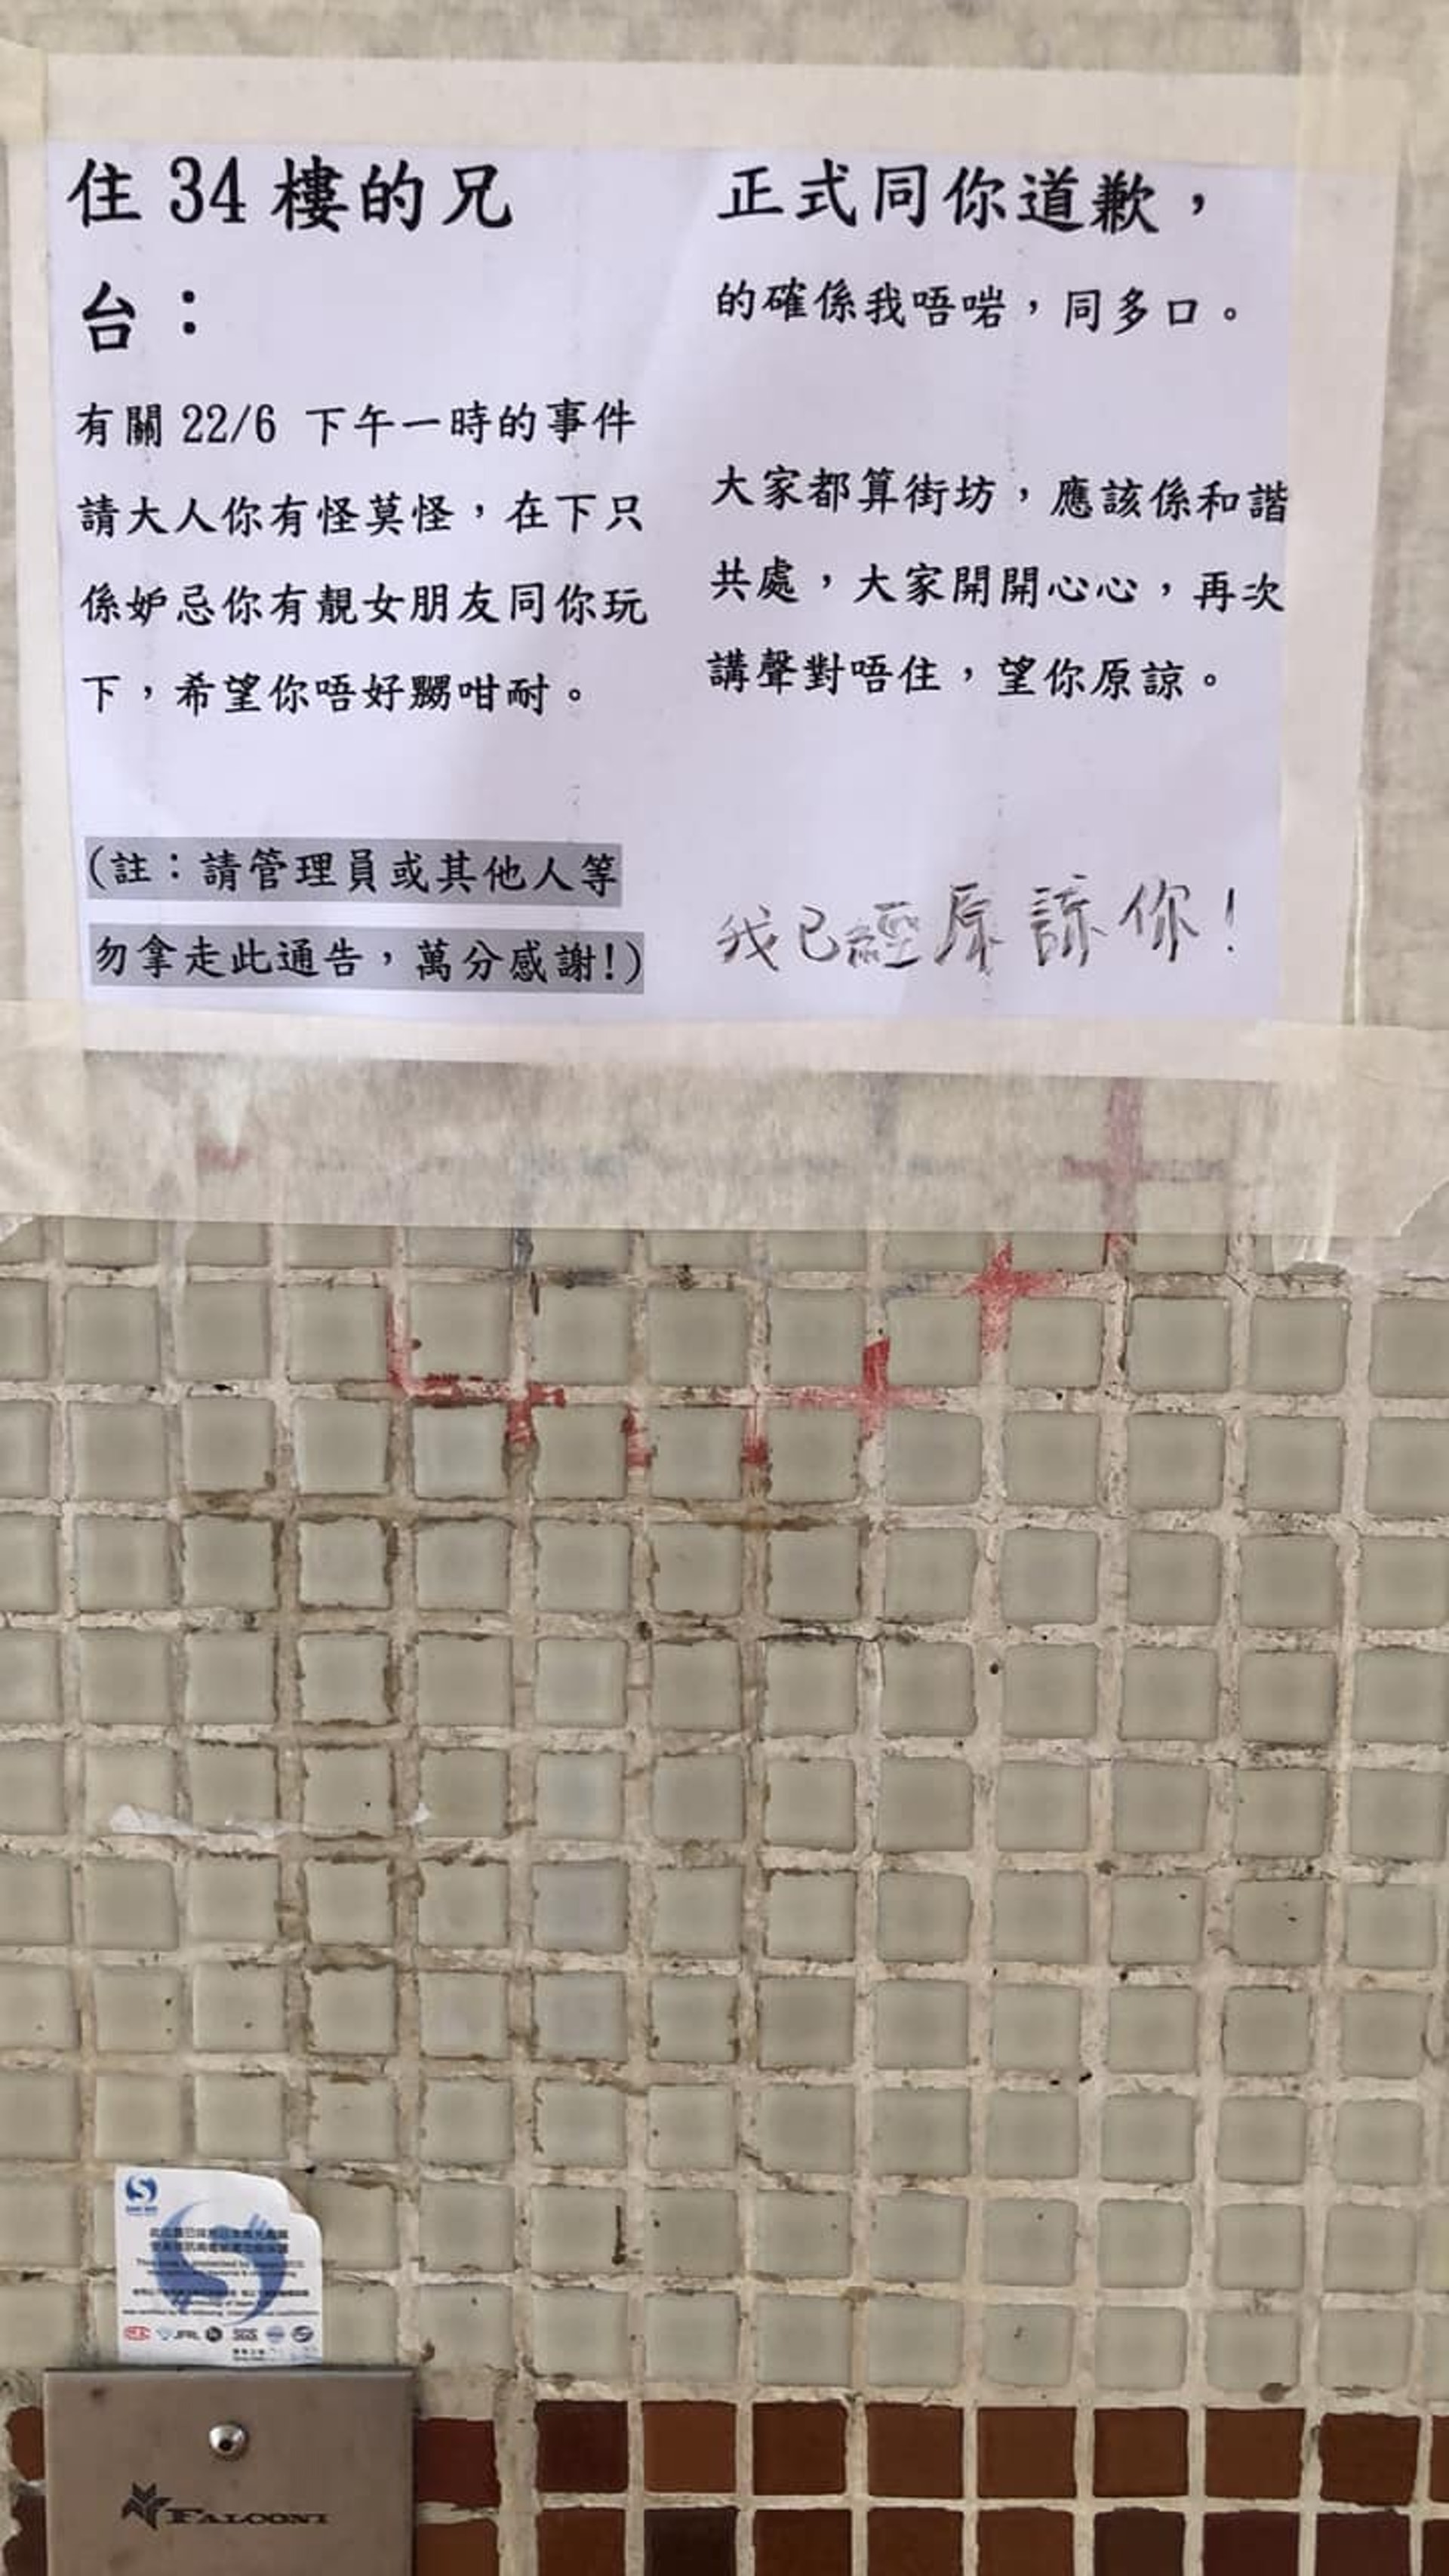 住 34 樓的兄
台：
有關 22/6 下午一時的事件
請大人你有怪莫怪，在下只
係妒忌你有靚女朋友同你玩
下，希望你唔好嬲咁耐。
(註：請管理員或其他人等
勿拿走此通告，萬分感謝!)
正式同你道歉，
的確係我唔啱，同多口。
大家都算街坊，應該係和諧
共處，大家開開心心，再次
講聲對唔住，望你原諒。
我已經原諒你！
SGS
FALCONI